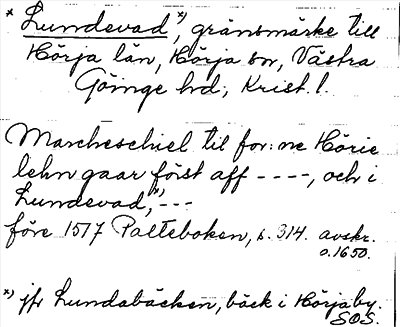 * Lundevad *), gränsmärke till
Hörja län, Hörja sn, Västra
Göinge hd, Krist. l.
Marcheschiel til for:ne Hörie
lehn gaar först aff ----, och i
Lundevad,*) ---
före 1517 Palteboken, s. 314. avskr.
o. 1650.
*) jfr Lundabäcken, bäck i Hörjaby.
SOS.